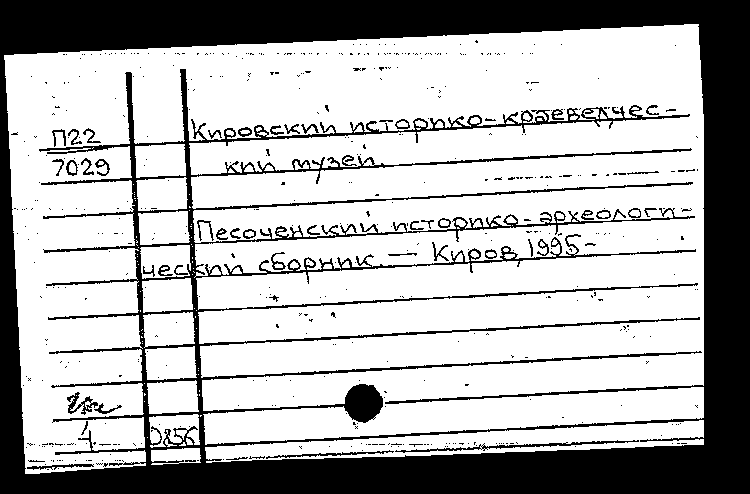 П22
7029
Кировский историко-краеведчес-
кий музей.
Песоченский историко-археологи-
ческий сборник — Киров, 1995-
4